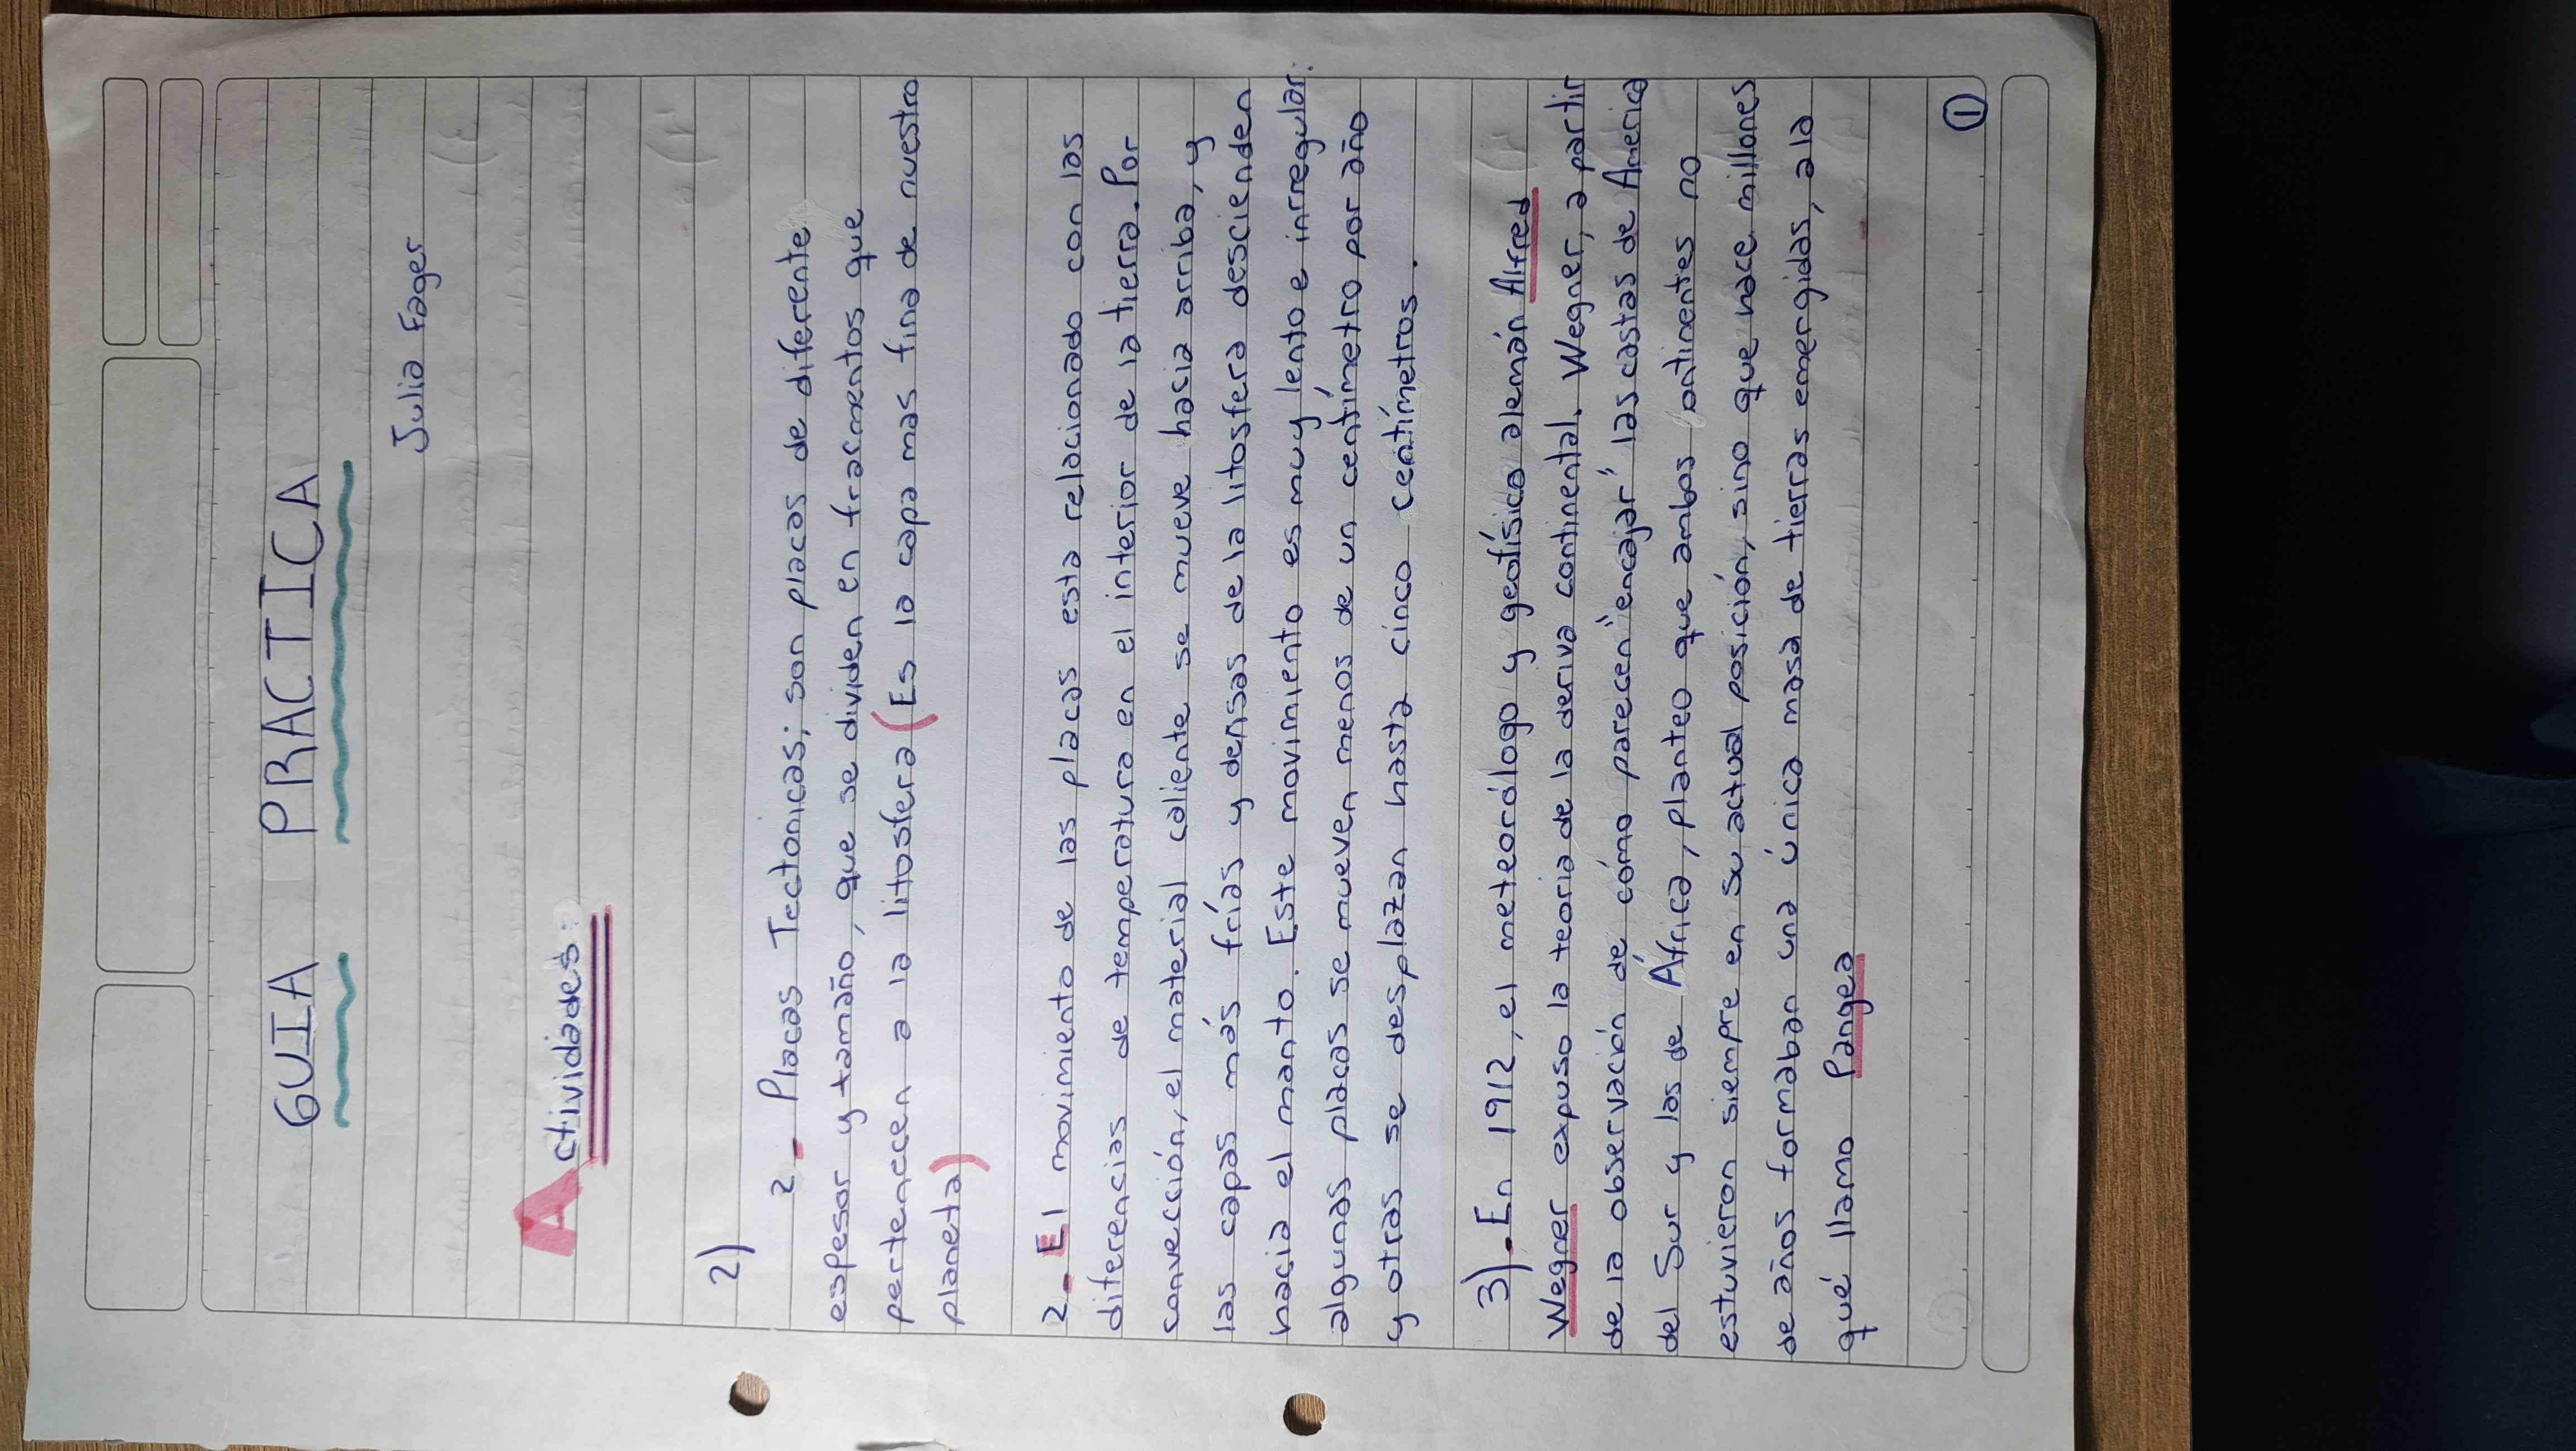 GUIA PRACTICA
Julia Fages
Actividades:
2)
2. Placas Tectonicas; son placas de diferente
espesor y tamaño, que se dividen en fracmentos que
pertenecen a la litosfera (Es la capa mas fina de nuestro
planeta)
2. El movimiento de las placas esta relacionado con las
diferencias de temperatura en el interior de la tierra. Por
convección, el material caliente se mueve hasia arriba, y
las capas más frías y densas de la litosfera descienden
hacia el manto. Este movimiento es muy lento e irregular:
algunas placas se mueven menos de un centímetro por año
y otras se desplazan hasta cinco centímetros.
3). En 1912, el meteorólogo y geofísico alemán Alfred
Wegner expuso la teoria de la deriva continental. Wegner, a partir
de la observación de cómo parecen "encajar" las costas de America
del Sur y las de África, planteo que ambos ontinentes no
estuvieron siempre en su actual posición, sino que hace millones
de años formaban una única masa de tierras emergidas, a la
qué llamo Pangea
1